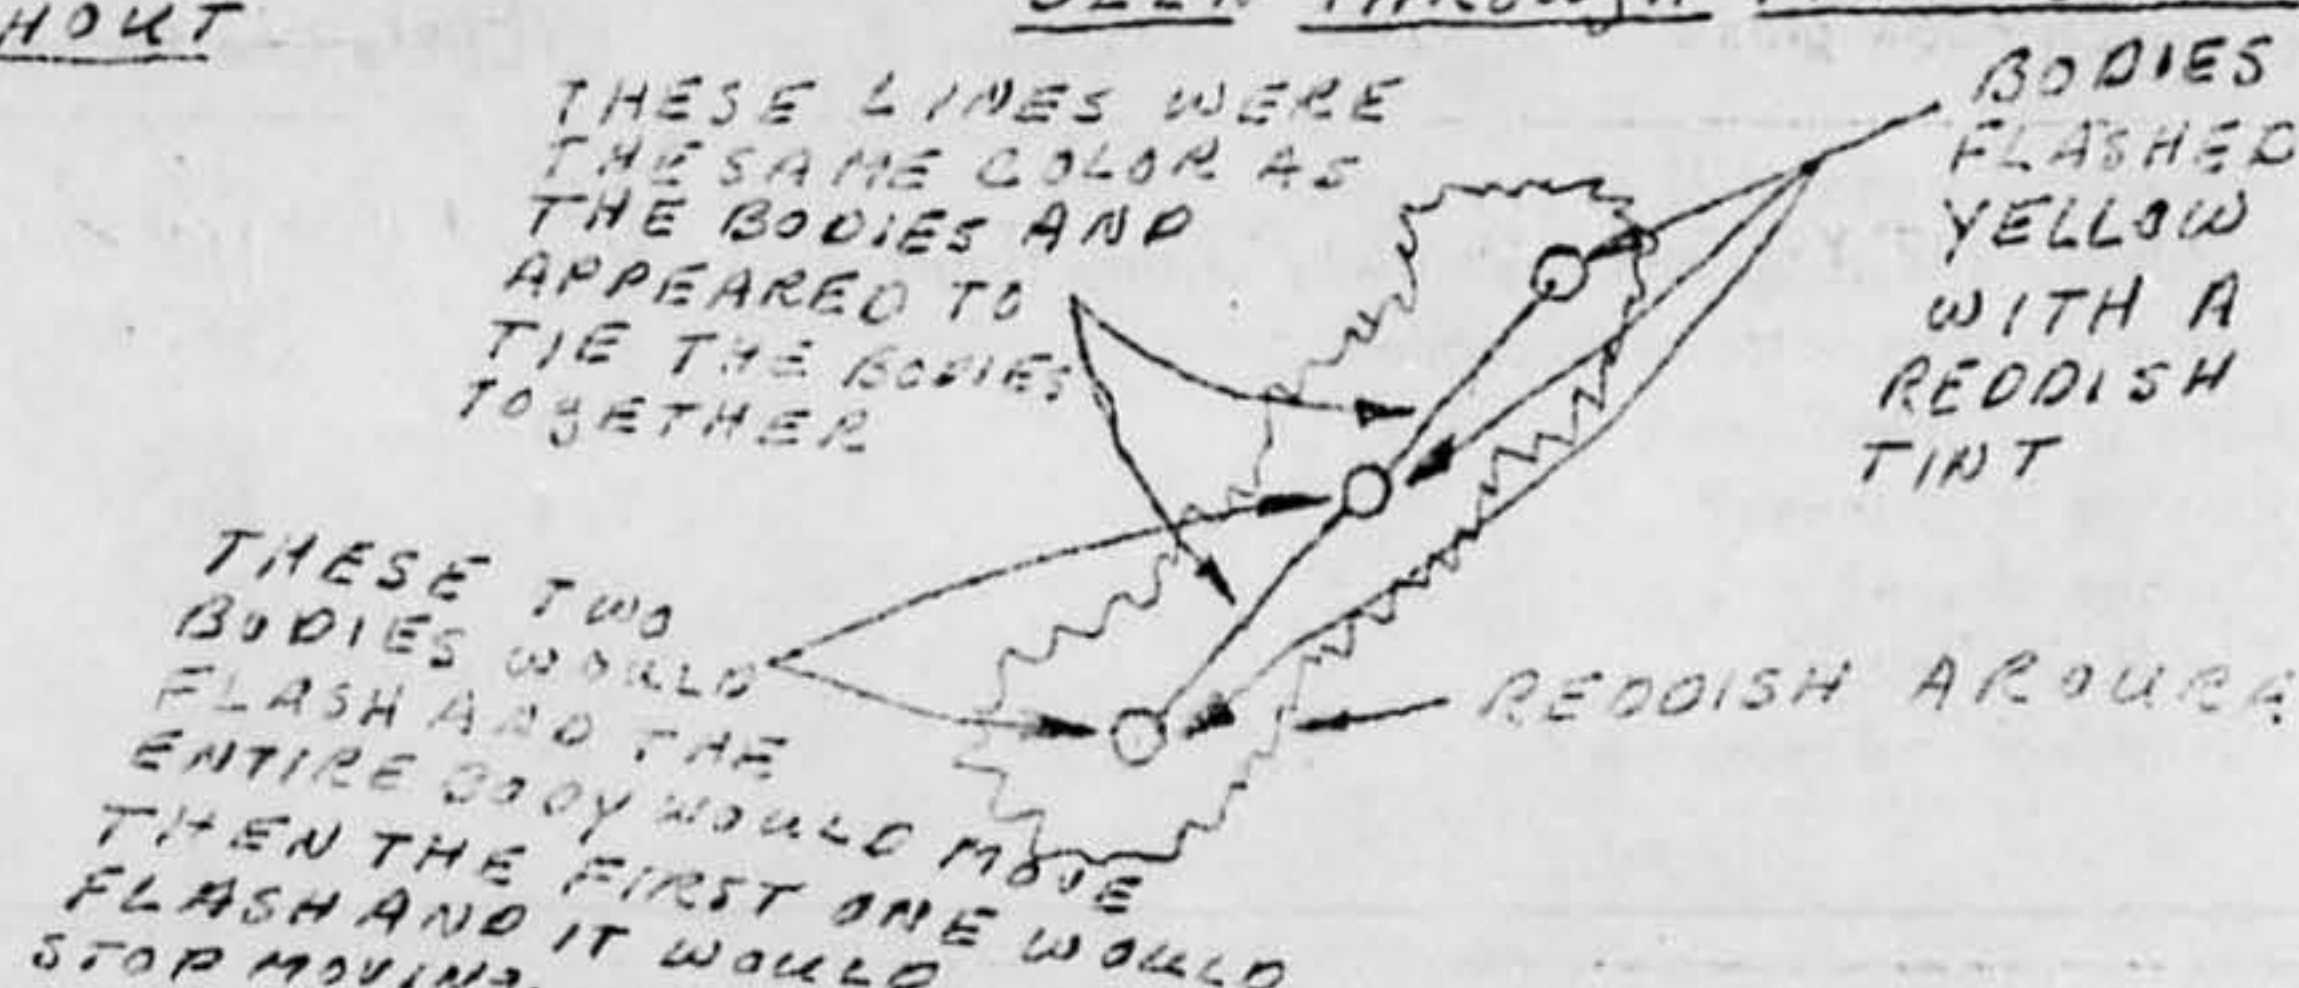 SEEN THROUGH
THESE LINES WERE
THE SAME COLOR AS
THE BODIES AND
APPEARED TO
TIE THE BODIES
TOGETHER
BODIES
FLASHED
YELLOW
WITH A
REDDISH
TINT
THESE TWO
BODIES WOULD
FLASH AND THE
ENTIRE BODY WOULD MOVE
THEN THE FIRST ONE WOULD
FLASH AND IT WOULD
STOP MOVING.
REDDISH AROURA